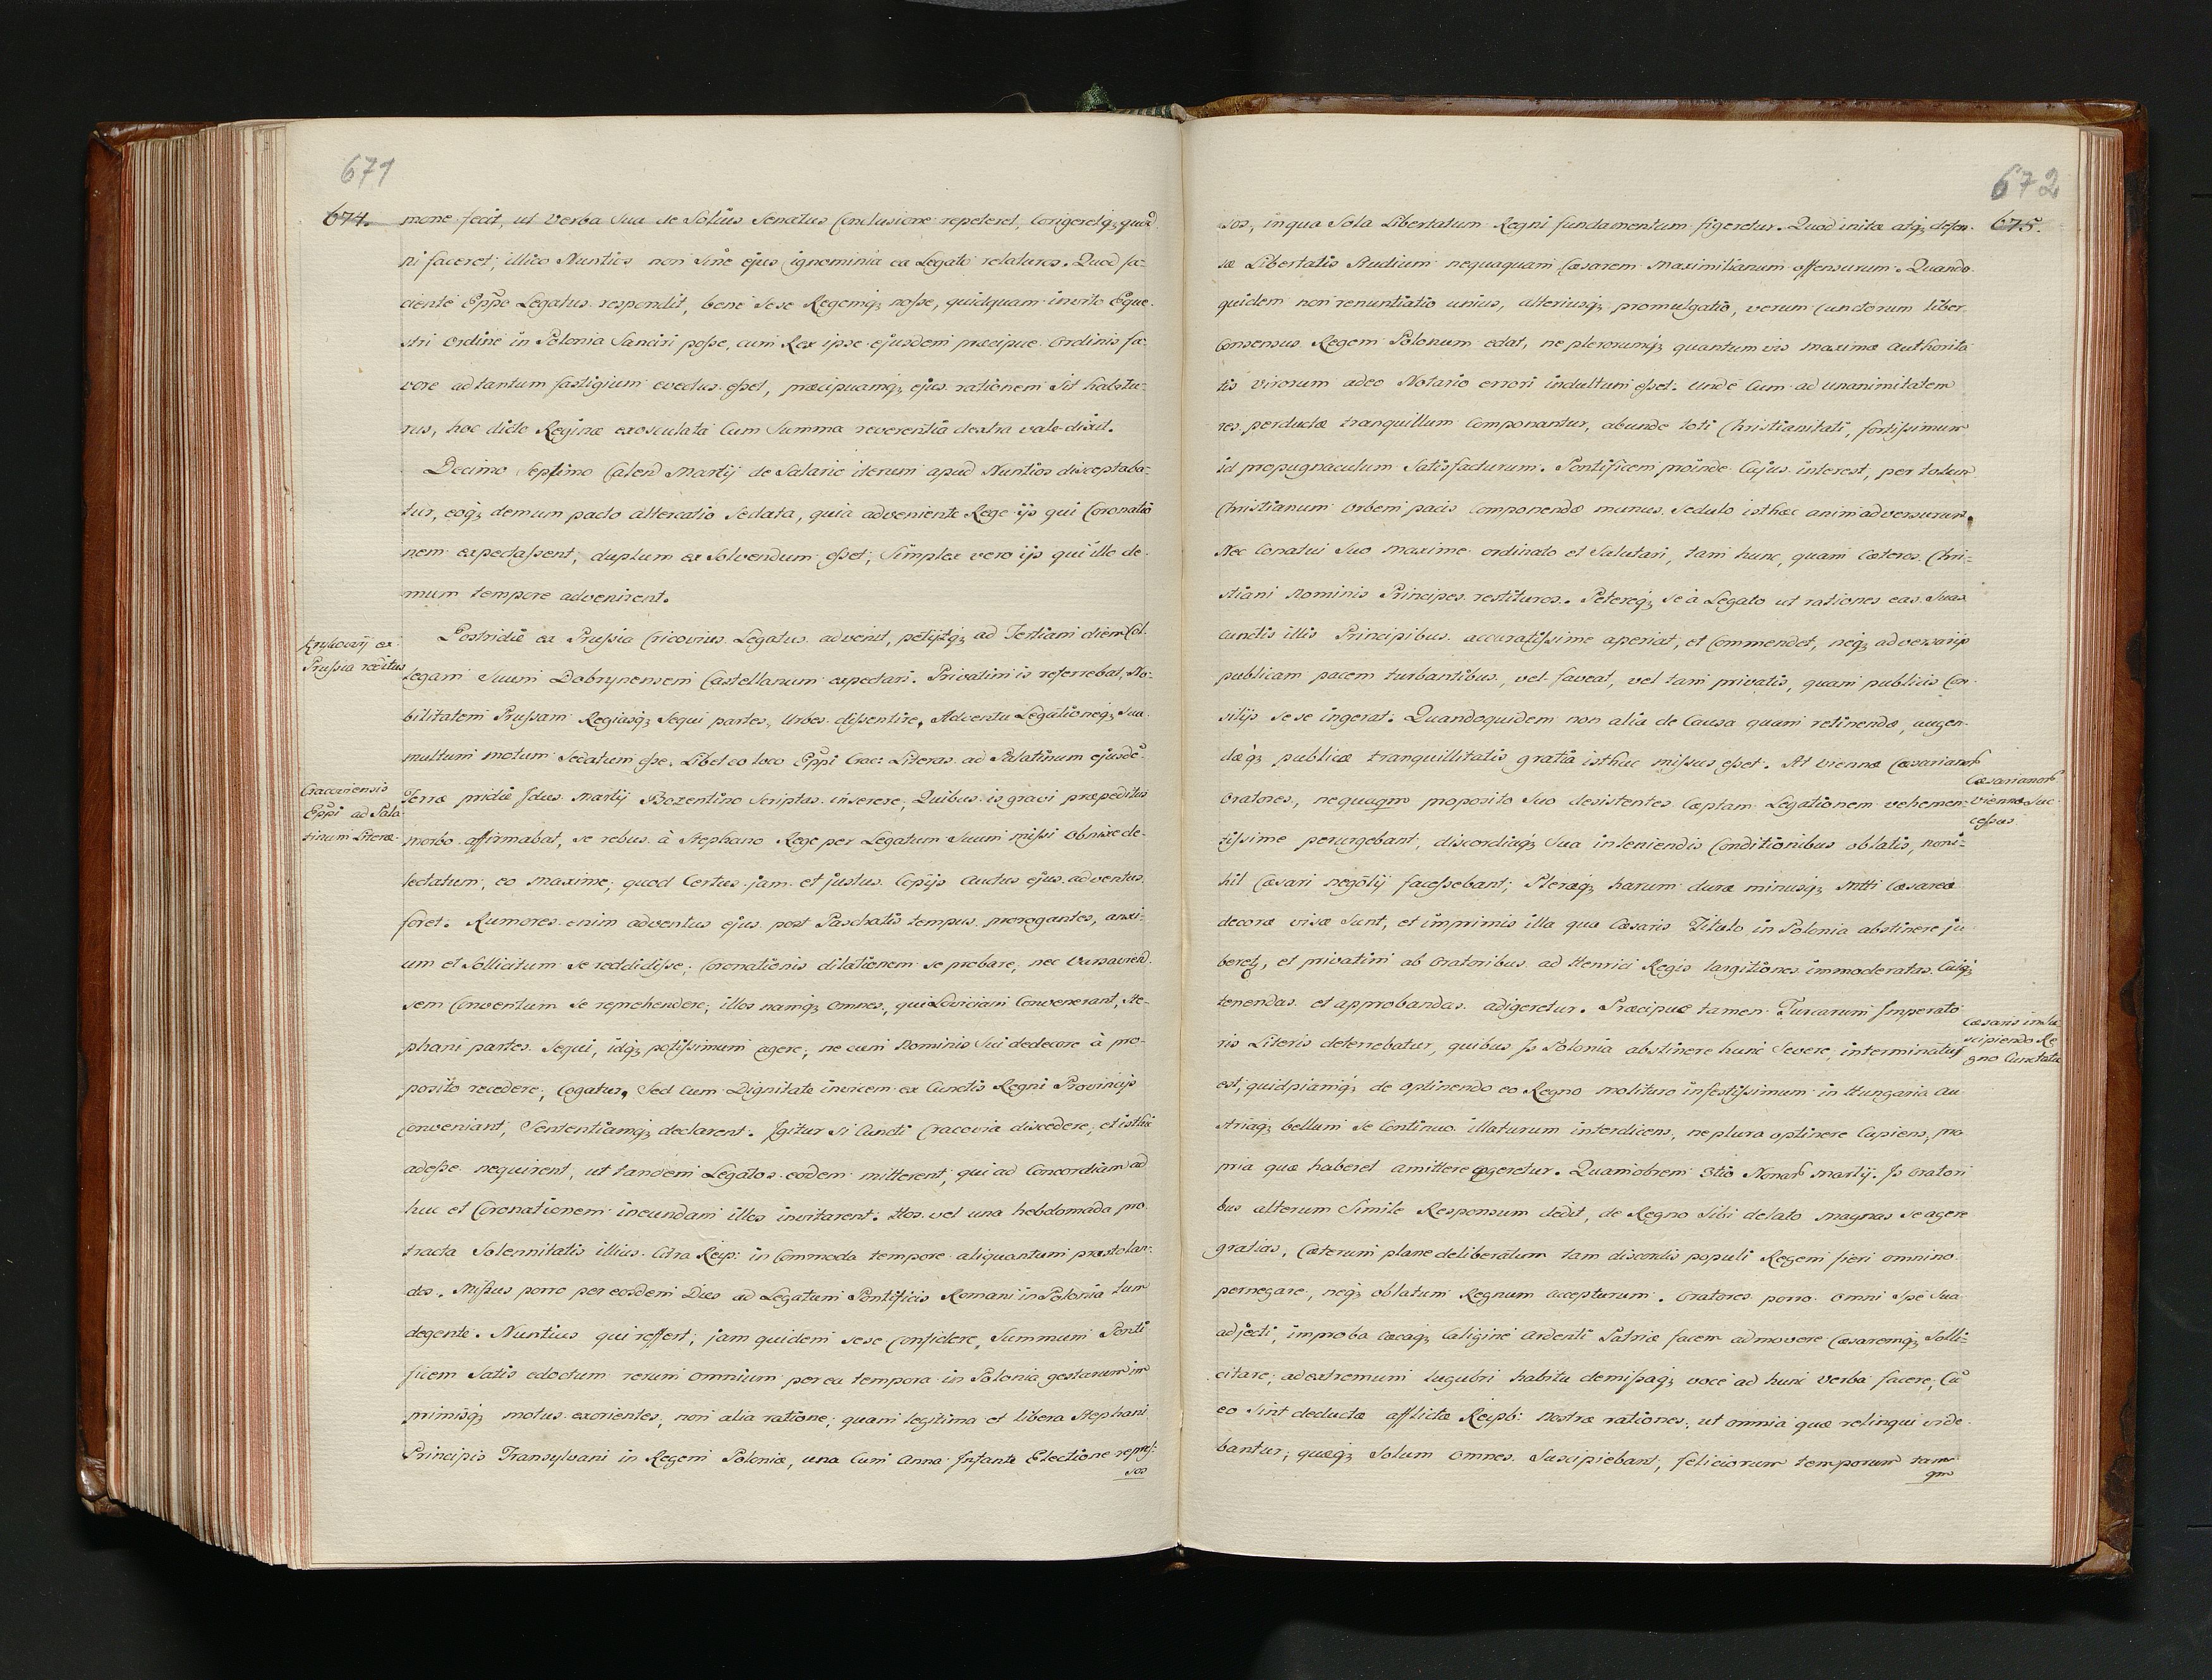 671
674.
mone fecit, ut verba sua de Solius Senatus Conclusione repeteret, Corigeretq; quod
ni faceret, illico Nuntios non sine ejus ignominia ea Legato relaturos. Quod fa-
ciente Eppo Legatus respondit, bene sese Regemq; nosse, quidquam invito Eque
stri Ordine in Polonia Sanciri posse, cum Rex ipse ejusdem præcipue Ordinis fa-
vore ad tantum fastigium evectus esset, præcipuamq; ejus rationem sit habitu-
rus, hoc dicto Reginæ exosculata Cum Summa reverentia dextra vale dixit.
Decimo Septimo Calend Martij de Salario iterum apud Nuntios disceptaba-
tur, eoq; demum pacto altercatio Sedata, quia adveniente Rege ijs qui Coronatio
nem expectassent, duplum exsolvendum esset, Simplex vero ijs qui illo de-
mum tempore advenirent.
Postridie ex Prussia Cricovius Legatus advenit, petijtq; ad Tertiam diem Col-
legam Suum Dobrynensem Castellanum expectari. Privatim is referrebat, No-
bilitatem Prussam Regiasq; Sequi partes, Urbes dissentire, Adventu Legationeq; sua
multum motum Sedatum esse. Libet eo loco Eppi Crac: Literas ad Palatinum ejusde
Terræ pridie Idus Martij Bozentino Scriptas inserere, Quibus is gravi præpeditus
morbo affirmabat, se rebus à Stephano Rege per Legatum Suum missi obnixe de-
lectatum, eo maxime, quod Certus jam et justus Copijs auctus ejus adventus
foret. Rumores enim adventus ejus post Paschatis tempus prorogantes, anxi-
um et Sollicitum se reddidisse, Coronationis dilationem se probare, nec Varsavien-
sem Conventum Se reprehendere, illos namq; omnes, qui Loviciam Convenerant, Ste-
phani partes Sequi, idq; potissimum agere, ne cum Nominis Sui dedecore à pro-
posito recedere, Cogatur, Sed Cum Dignitate invicem ex Cunctis Regni Provincijs
Conveniant, Sententiamq; declarent. Igitur si Cuncti Cracovia discedere, et isthic
adesse nequirent, ut tandem Legatos eodem mitterent, qui ad Concordiam ad
huc et Coronationem ineundam illos invitarent. Hos vel una hebdomada pro
tracta Solennitatis illius Citra Reip: in Commoda tempore aliquantum præstolan-
dos. Missus porro per eosdem Dies ad Legatum Pontificis Romani in Polonia tum
degente. Nuntius qui reffert, jam quidem sese Confidere, Summum Ponti
ficem Satis edoctum rerum omnium per ea tempora in Polonia gestarum in
primisq; motus exorientes, non alia ratione, quam legitima et libera Stephani
Principis Transylvani in Regem Poloniæ, una Cum Anna Infante Electione repres-
sos
Kryskovij ex
Prussia reditus
Cracoviensis
Eppi ad Pala
tinum Literæ
672
675.
sos, in qua Sola Libertatum Regni fundamentum figeretur. Quod initæ atq; defen-
sæ Libertatis Studium nequaquam Cæsarem Maximilianum offensurum. Quando
quidem non renuntiatio unius, alteriusq; promulgatio, verum Cunctorum liber
Consensus Regem Polonum edat, ne plerorumq; quantum vis maximæ Authorita
tis virorum adeo Notario errori indultum esset. Unde Cum ad unanimitatem
res perductæ tranquillum Componantur, abunde toti Christianitati, fortissimum
id propugnaculum Satisfacturum. Pontificem proinde Cujus interest, per totum
Christianum Orbem pacis Componendæ munus Sedulo isthæc animadversurum.
Nec Conatui Suo maxime ordinato et Salutari, tam hunc, quam Cæteros Chri-
stiani Nominis Principes restituros. Petereq; se à Legato ut rationes eas Suas
Cunctis illis Principibus accuratissime aperiat, et Commendet, neq; adversarijs
publicam pacem turbantibus, vel faveat, vel tam privatis, quam publicis Con-
silijs sese ingerat. Quandoquidem non alia de Causa quam retinendæ, augen-
dæq; publicæ tranquillitatis gratia isthuc missus esset. At Viennæ Cæsarianor
Oratores, nequaqm proposito Suo desistentes Cæptam Legationem vehemen-
tissime perurgebant, discordiaq; Sua in leniendis Conditionibus oblatis, noni-
hil Cæsari negotij facessebant; Pleraq; harum duræ minusq; Mtti Cæsareæ
decoræ visæ Sunt, et imprimis illa qua Cæsaris Titulo in Polonia abstinere ju
beretr, et privatim ab Oratoribus ad Henrici Regis largitiones immoderatas Cuiq;
tenendas et approbandas adigeretur. Præcipue tamen Turcarum Imperato
ris Literis deterrebatur, quibus Is Polonia abstinere hunc Severe, interminatus
est, quidpiamq; de optinendo eo Regno molituro infestissimum in Hungaria Au
striaq; bellum Se Continuo illaturum interdicens, ne plura optinere Cupiens, pro
pria quæ haberet amittere cogeretur. Quamobrem 3tio Nonar Martij. Is Oratori
bus alterum Simile Responsum dedit, de Regno Sibi delato magnas se agere
gratias, Cæterum plane deliberatum tam discordis populi Regem fieri omnino
pernegare, neq; oblatum Regnum accepturum. Oratores porro omni Spe Sua
adjecti, improba cæcaq; Caligine ardenti Patriæ facem admovere Cæsaremq; Solli-
citare, ad extremum lugubri habitu demissaq; voce ad hunc verba facere, Cu
eo Sint deductæ afflictæ Reipb: Nostræ rationes, ut omnia quæ relinqui vide
bantur, quæq; Solum omnes Suscipiebant, feliciorum temporum tam
qm
Cæsarianor
Viennæ Suc-
cessus
Cæsaris in Su
scipiendo Re
gno Cunctatio